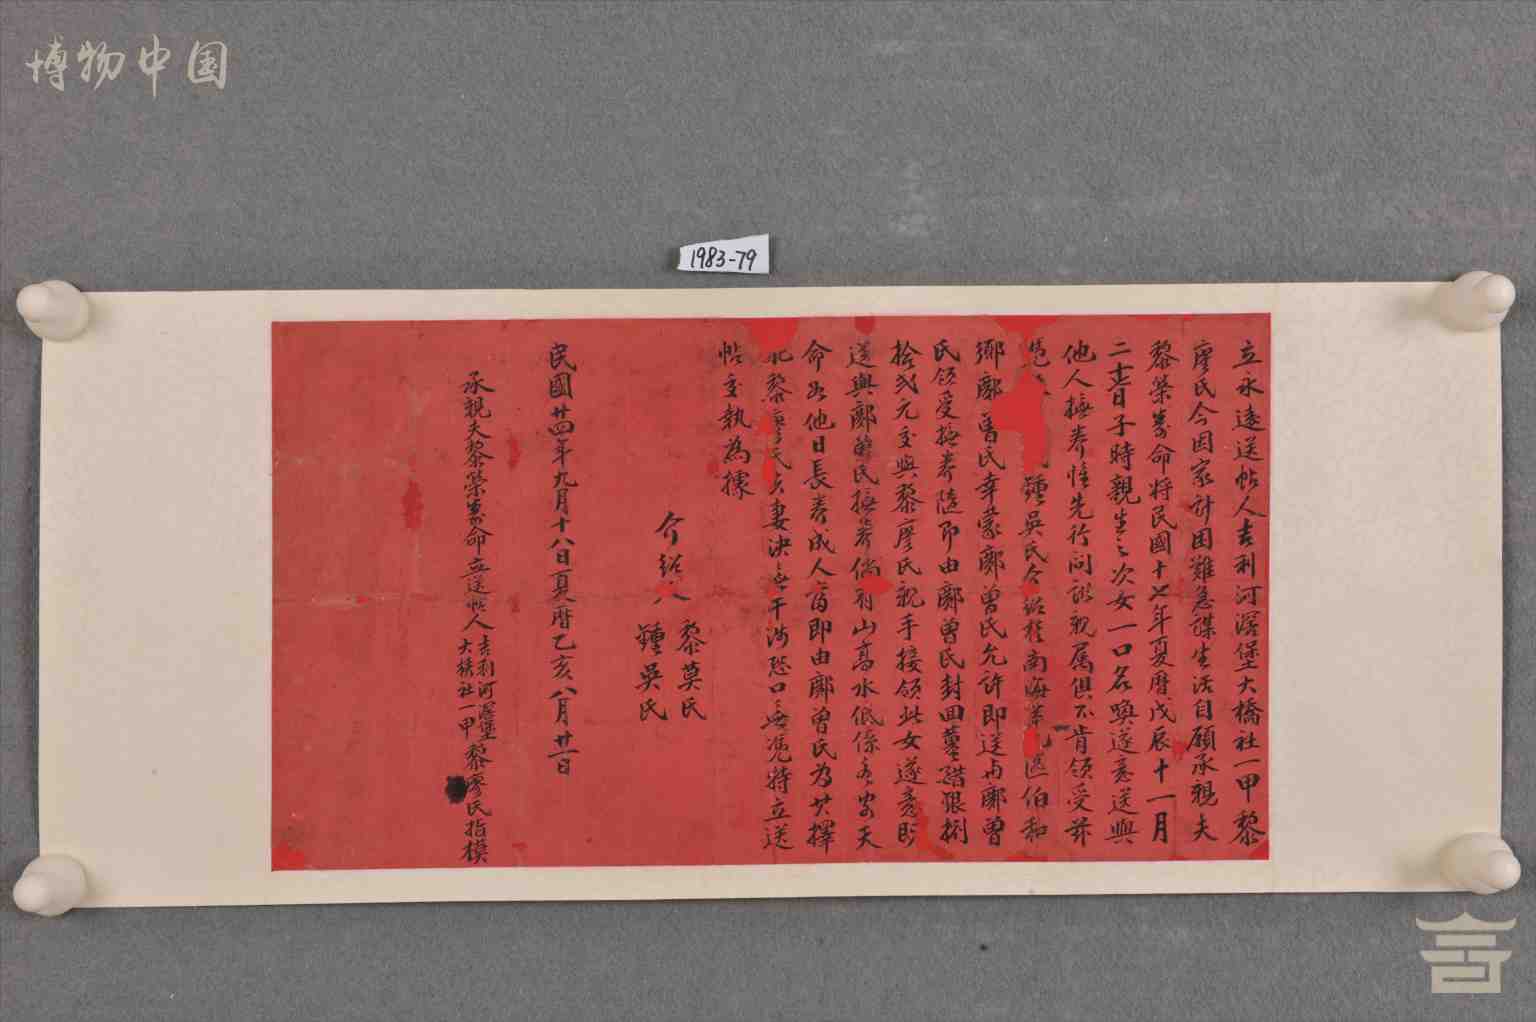 博物中国
1983-79
立永遠送帖人吉利河滘堡大橋社一甲黎
廖氏今因家計困難急謀生活自願承親夫
黎榮萬命將民國十七年夏曆戊辰十一月
二十日子時親生之次女一口名喚遂意送與
他人撫養惟先行問訊親属俱不肯領受茲
憑 鍾吳氏介紹於南海第九區伯和
鄉鄺曾氏幸蒙鄺曾氏允許即送與鄺曾
氏領受撫養隨即由鄺曾氏封回薑醋銀捌
拾弍元交與黎廖氏親手接領此女遂意即
送與鄺曾氏撫養倘有山高水低係各安天
命如他日長養成人亦即由鄺曾氏為其擇
配黎廖氏夫妻決無干涉恐口無憑特立送
帖交執為據
介紹人
黎莫氏
鍾吳氏
民國廿四年九月十八日夏曆乙亥八月廿一日
承親夫黎榮萬命立送帖人吉利河滘堡大橋社一甲黎廖氏指模